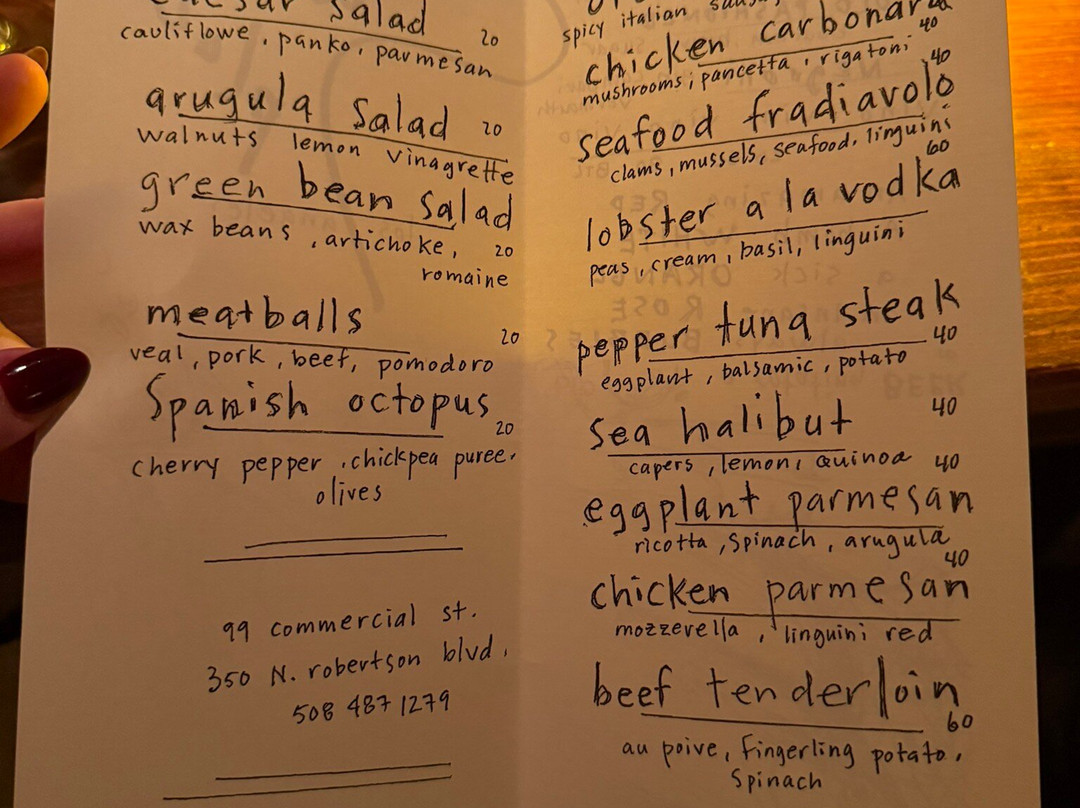 salad
20
cauliflowe, panko, parmesan
arugula salad
20
walnuts lemon vinagrette
green bean salad
wax beans, artichoke, 20
romaine
meatballs
20
veal, pork, beef, pomodoro
Spanish octopus
20
cherry pepper, chickpea puree,
olives
99 commercial st.
350 N. robertson blvd,
508 487 1279
spicy italian
chicken carbonara
40
mushrooms, pancetta, rigatoni
40
seafood fradiavolo
clams, mussels, seafood, linguini
60
lobster a la vodka
peas, cream, basil, linguini
pepper tuna steak
40
eggplant, balsamic, potato
sea halibut
40
capers, lemon, quinoa
40
eggplant parmesan
ricotta, spinach, arugula
40
chicken parmesan
mozzerella, linguini red
beef tenderloin
60
au poive, fingerling potato,
spinach